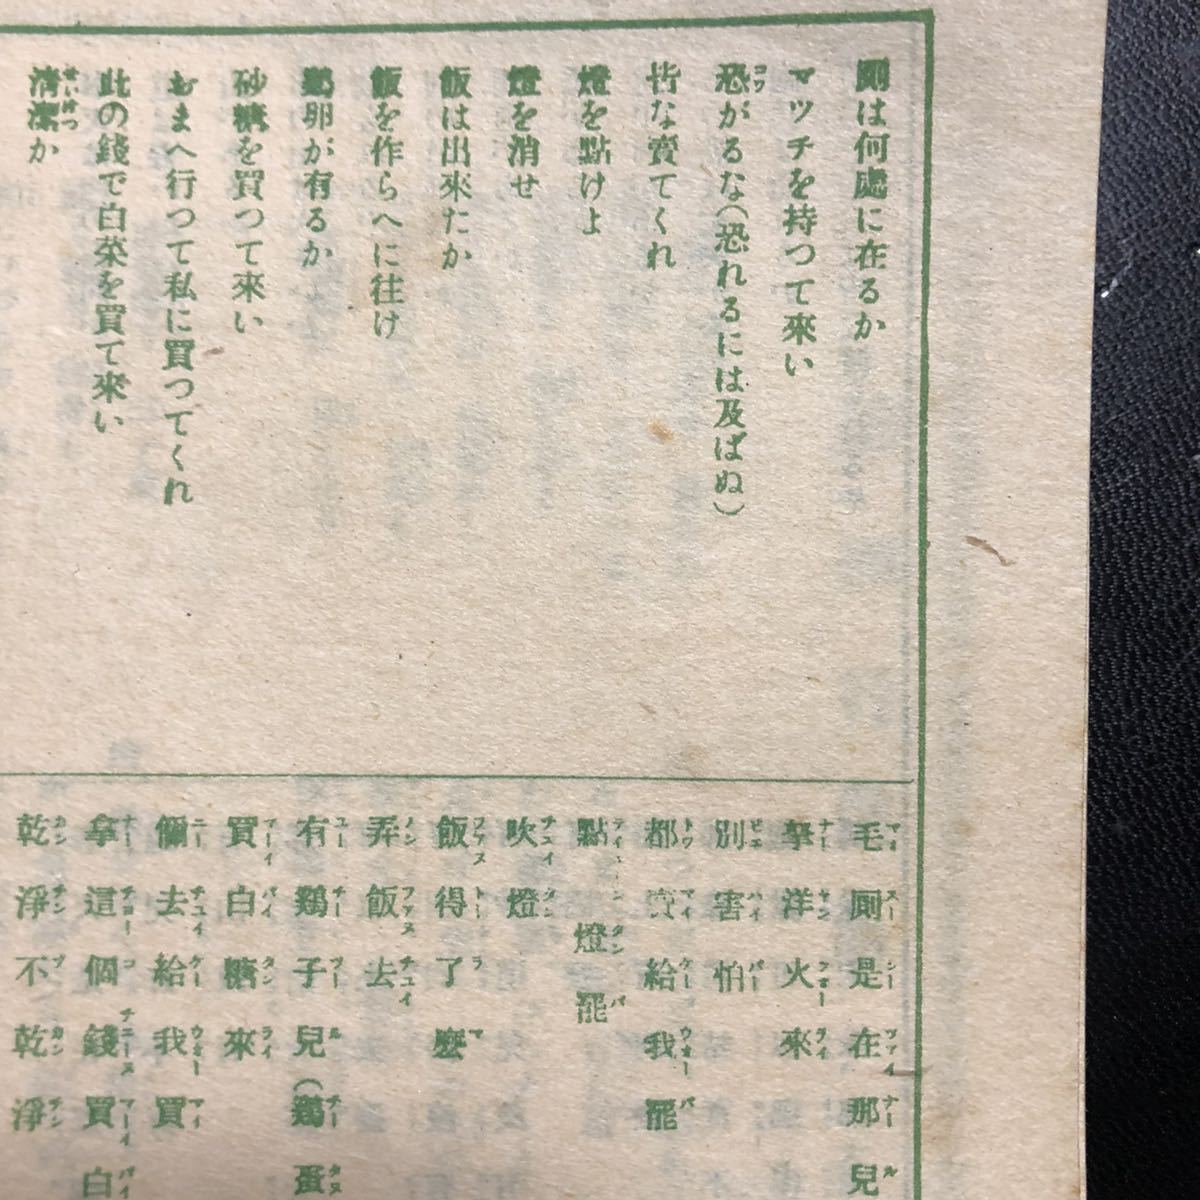 厠は何處に在るか
マツチを持つて來い
恐がるな（恐れるには及ばぬ）
皆な賣てくれ
燈を點けよ
燈を消せ
飯は出來たか
飯を作らへに往け
鷄卵が有るか
砂糖を買つて來い
おまへ行つて私に買つてくれ
此の錢で白菜を買て來い
清潔か
毛厠是在那兒
拏洋火來
別害怕
都賣給我罷
點燈罷
吹燈
飯得了麽
弄飯去
有鷄子兒（鷄蛋
買白糖來
儞去給我買
拿這個錢買白
乾淨不乾淨